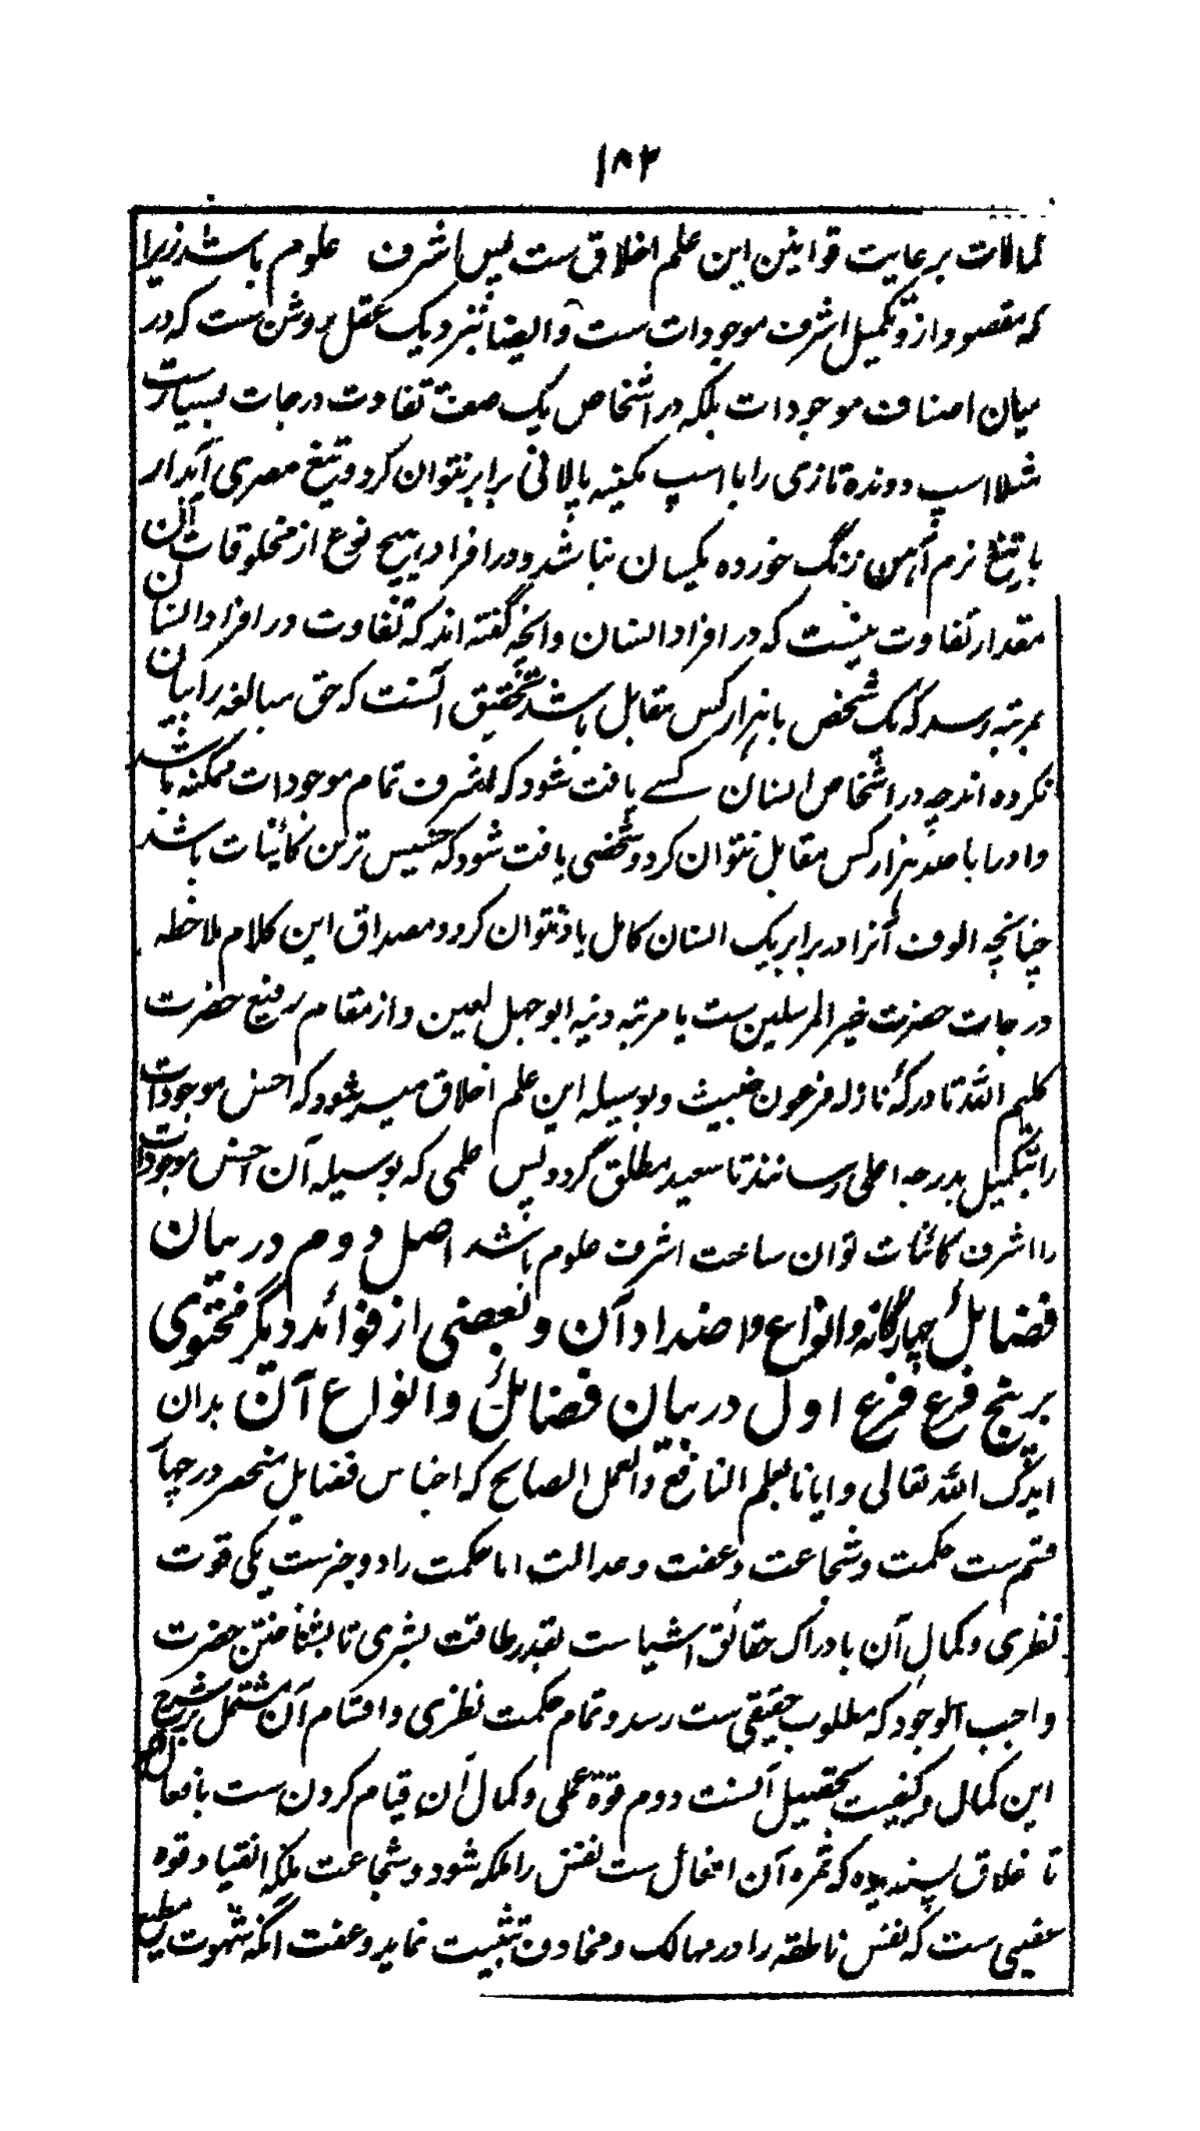 ۱۸۲
کمالات برعایت قوانین این علم اخلاق ست پس اشرف علوم باشد زیرا
که مقصود ازو تکمیل اشرف موجودات ست و ایضا بنزدیک عقل روشن ست که در
میان اصناف موجودات بلکه در اشخاص یک صنف تفاوت درجات بسیارست
مثلا اسپ دونده تازی را با اسپ کمینه پالانی برابر نتوان کرد و تیغ مصری آبدار
با تیغ نرم آهن زنگ خورده یکسان نباشد و در افراد هیچ نوع از مخلوقات آن
مقدار تفاوت نیست که در افراد انسان و آنچه گفته اند که تفاوت در افراد انسان
بمرتبه رسد که یک شخص با هزار کس مقابل باشد تحقیق آنست که حق مبالغه را بیان
نکرده اند چه در اشخاص انسان کسے یافت شود که اشرف تمام موجودات ممکنه باشد
و او را با صد هزار کس مقابل نتوان کرد و شخصی یافت شود که خسیس ترین کائنات باشد
چنانچه الوف آنرا در برابر یک انسان کامل یاد نتوان کرد و مصداق این کلام ملاحظه
درجات حضرت خیر المرسلین ست با مرتبه دنیه ابوجهل لعین و از مقام رفیع حضرت
کلیم الله تا درکه نازله فرعون خبیث و بوسیله این علم اخلاق میسر شود که اخس موجودات
را بتکمیل بدرجه اعلی رسانند تا سعید مطلق گردد پس علمی که بوسیله آن اخس موجودات
را اشرف کائنات توان ساخت اشرف علوم باشد اصل دوم در بیان
فضائل چهارگانه و انواع و اضداد آن و بعضی از فوائد دیگر محتوی
بر پنج فرع فرع اول در بیان فضائل و انواع آن بدان
ایدک الله تعالی و ایانا بعلم النافع و العمل الصالح که اجناس فضایل منحصر در چهار
قسم ست حکمت و شجاعت و عفت و عدالت اما حکمت را دو جزست یکی قوت
نظری و کمال آن بادراک حقائق اشیاست بقدر طاقت بشری تا بشناختن حضرت
واجب الوجود که مطلوب حقیقی ست رسد و تمام حکمت نظری و اقسام آن مشتمل بر شرح
این کمال و کیفیت تحصیل آنست دوم قوة عملی و کمال آن قیام کردن ست بافعال
تا اخلاق پسندیده که ثمره آن افعال ست نفس را ملکه شود و شجاعت ملکه انقیاد قوه
غضبی ست که نفس ناطقه را در مهالک و مخاوف تثبیت نماید و عفت آنکه شهوت مطیع